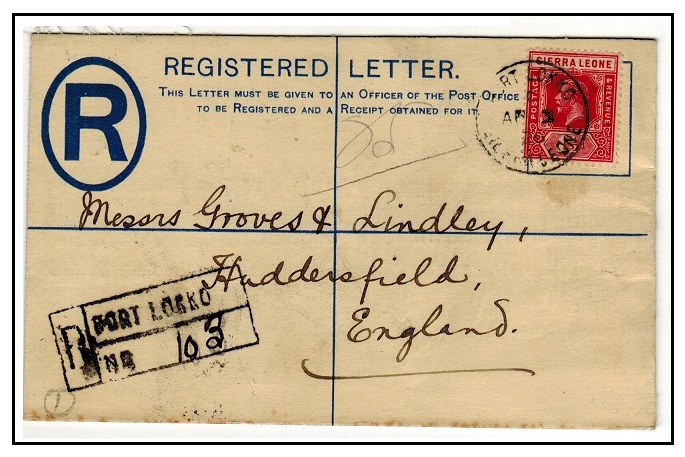 R
REGISTERED LETTER.
THIS LETTER MUST BE GIVEN TO AN OFFICER OF THE POST OFFICE
TO BE REGISTERED AND A RECEIPT OBTAINED FOR IT
SIERRA LEONE
POSTAGE
& REVENUE
RT LOKKO
AP
SIERRA LEONE
Messrs Groves & Lindley,
Huddersfield,
England.
R
PORT LOKKO
NO 103
1